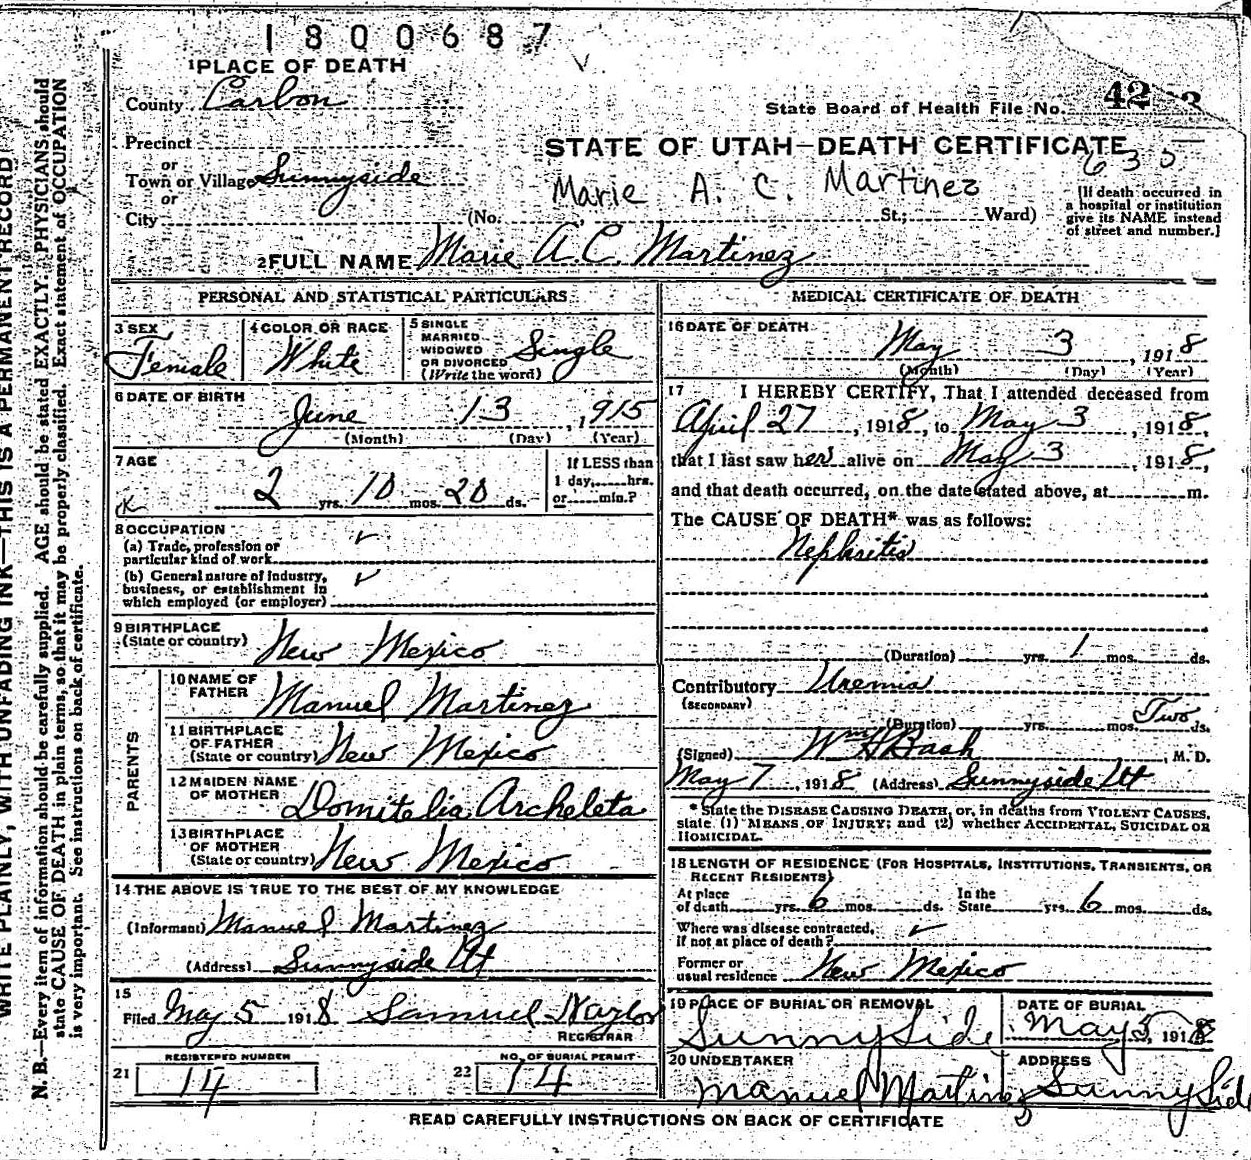 1800687
1 PLACE OF DEATH
County Carbon
State Board of Health File No. 42
Precinct
STATE OF UTAH—DEATH CERTIFICATE
or
Town or Village Sunnyside
635
Marie A. C. Martinez
or
City (No. St.; Ward)
[If death occurred in
a hospital or institution
give its NAME instead
of street and number.]
2 FULL NAME Marie A C. Martinez
PERSONAL AND STATISTICAL PARTICULARS
3 SEX Female
4 COLOR OR RACE White
5 SINGLE
MARRIED
WIDOWED
OR DIVORCED
(Write the word) Single
6 DATE OF BIRTH
June 13, 1915
(Month) (Day) (Year)
7 AGE
2 yrs. 10 mos. 20 ds.
If LESS than
1 day, hrs.
or min.?
8 OCCUPATION
(a) Trade, profession or
particular kind of work
(b) General nature of industry,
business, or establishment in
which employed (or employer)
9 BIRTHPLACE
(State or country) New Mexico
PARENTS
10 NAME OF
FATHER Manuel Martinez
11 BIRTHPLACE
OF FATHER
(State or country) New Mexico
12 MAIDEN NAME
OF MOTHER Domitelia Archeleta
13 BIRTHPLACE
OF MOTHER
(State or country) New Mexico
14 THE ABOVE IS TRUE TO THE BEST OF MY KNOWLEDGE
(Informant) Manuel Martinez
(Address) Sunnyside Ut
15
Filed May 5 1918 Samuel Naylor
REGISTRAR
REGISTERED NUMBER
21 14
NO. OF BURIAL PERMIT
22 14
MEDICAL CERTIFICATE OF DEATH
16 DATE OF DEATH
May 3, 1918
(Month) (Day) (Year)
17 I HEREBY CERTIFY, That I attended deceased from
April 27, 1918, to May 3, 1918,
that I last saw her alive on May 3, 1918,
and that death occurred, on the date stated above, at m.
The CAUSE OF DEATH* was as follows:
Nephritis
(Duration) yrs. 1 mos. ds.
Contributory Uremia
(SECONDARY)
(Duration) yrs. mos. Two ds.
(Signed) Wm H Dash, M. D.
May 7, 1918 (Address) Sunnyside Ut
* State the DISEASE CAUSING DEATH, or, in deaths from VIOLENT CAUSES,
state (1) MEANS OF INJURY; and (2) whether ACCIDENTAL, SUICIDAL OR
HOMICIDAL.
18 LENGTH OF RESIDENCE (FOR HOSPITALS, INSTITUTIONS, TRANSIENTS, OR
RECENT RESIDENTS)
At place
of death yrs. 6 mos. ds.
In the
State yrs. 6 mos. ds.
Where was disease contracted,
if not at place of death?
Former or
usual residence New Mexico
19 PLACE OF BURIAL OR REMOVAL
Sunny Side
DATE OF BURIAL
May 5, 1918
20 UNDERTAKER
Manuel Martinez
ADDRESS
Sunny Side
READ CAREFULLY INSTRUCTIONS ON BACK OF CERTIFICATE
WRITE PLAINLY, WITH UNFADING INK—THIS IS A PERMANENT RECORD
N. B.—Every item of information should be carefully supplied. AGE should be stated EXACTLY. PHYSICIANS should
state CAUSE OF DEATH in plain terms, so that it may be properly classified. Exact statement of OCCUPATION
is very important. See instructions on back of certificate.